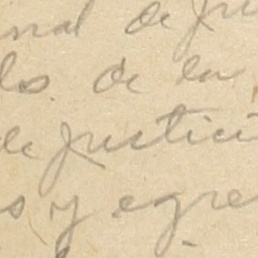 nal de ju
ls de la
de justici
s y egre